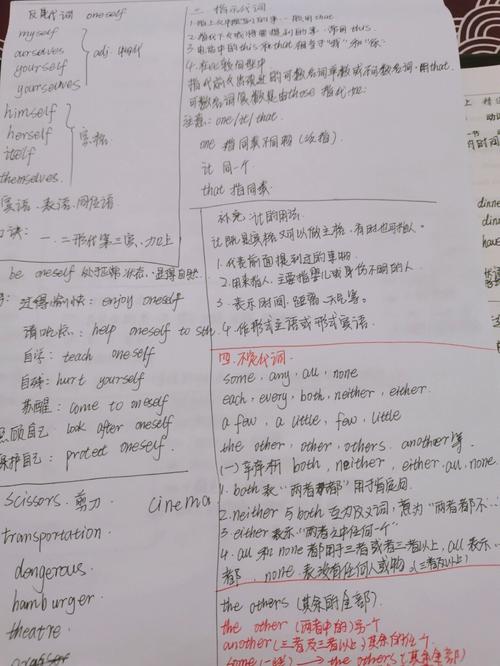 反身代词 oneself
myself
ourselves
yourself
yourselves
adj.
himself
herself
itself
themselves.
宾格
宾语、表语、同位语
诀: 一、二形代第三宾、
be oneself 处于正常状态、显得自然
过得愉快: enjoy oneself
请吃点: help oneself to sth
自学: teach oneself
自残: hurt yourself
苏醒: come to oneself
照顾自己 look after oneself
保护自己: protect oneself
scissors. 剪刀 cinema
transportation
dangerous.
hamburger
theatre
三. 指示代词
1. 指上文中提到的事. 一般用that
2. 指代下文或将要提到的事. 常用this.
3. 电话中的this和that相当于"我"和"你"
4. 在比较句型中
指代前文出现过的可数名词单数或不可数名词. 用that.
可数名词复数是由those指代
注意: one/it/that.
one 指同类不同物 (泛指)
it 同一个
that 指同类
补充: it的用法
it既是宾格又可以做主格, 有时也可指人.
1. 代表前面提到过的事物
2. 用来指人. 主要指婴儿或身份不明的人.
3. 表示时间. 距离. 天气等.
4. 作形式主语或形式宾语.
四. 不定代词.
some, any, all, none
each, every, both, neither, either.
a few, a little, few, little
the other, other, others. another等.
(一) both, neither, either, all, none
1. both表"两者都"用于肯定句.
2. neither与both互为反义词, 意为"两者都不…"
3. either表示"两者之中任何一个"
4. all和none都用于三者或者三者以上, all表示
都, none 表没有任何人或物 (三者及以上)
the others (其余的全部).
the other (两者中的) 另一个
another (三者及三者以上) 其余的任一个.
some (一些) the others (其余全部